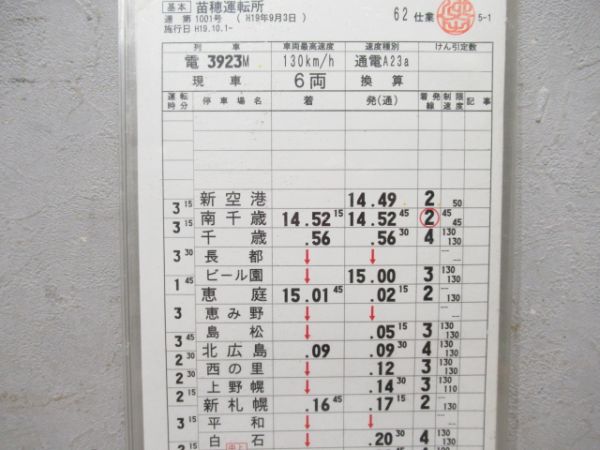 基本 苗穂運転所 62 仕業 5-1
運 第 1001号 ( H19年9月3日 )
施行日 H19.10.1-
列車 車両最高速度 速度種別 けん引定数
電 3923M 130km/h 通電A23a
現車 6両 換算
運転時分 停車場名 着 発(通) 着発線 制限速度 記事
新空港 14.49 2 50
3 15
南千歳 14.52 15 14.52 45 2 45 45
3 15
千歳 .56 .56 30 4 130 130
3 30
長都 ↓ ↓
ビール園 ↓ 15.00 3 130 130
1 45
恵庭 15.01 45 .02 15 2 130
3
恵み野 ↓ ↓
島松 ↓ .05 15 3 130 130
3 45
北広島 .09 .09 30 4 130 130
2 30
西の里 ↓ .12 3 130
2 30
上野幌 ↓ .14 30 3 130 110
2 15
新札幌 .16 45 .17 15 2 130
3 15
平和 ↓ ↓
白石 ↓ .20 30 4 130 130